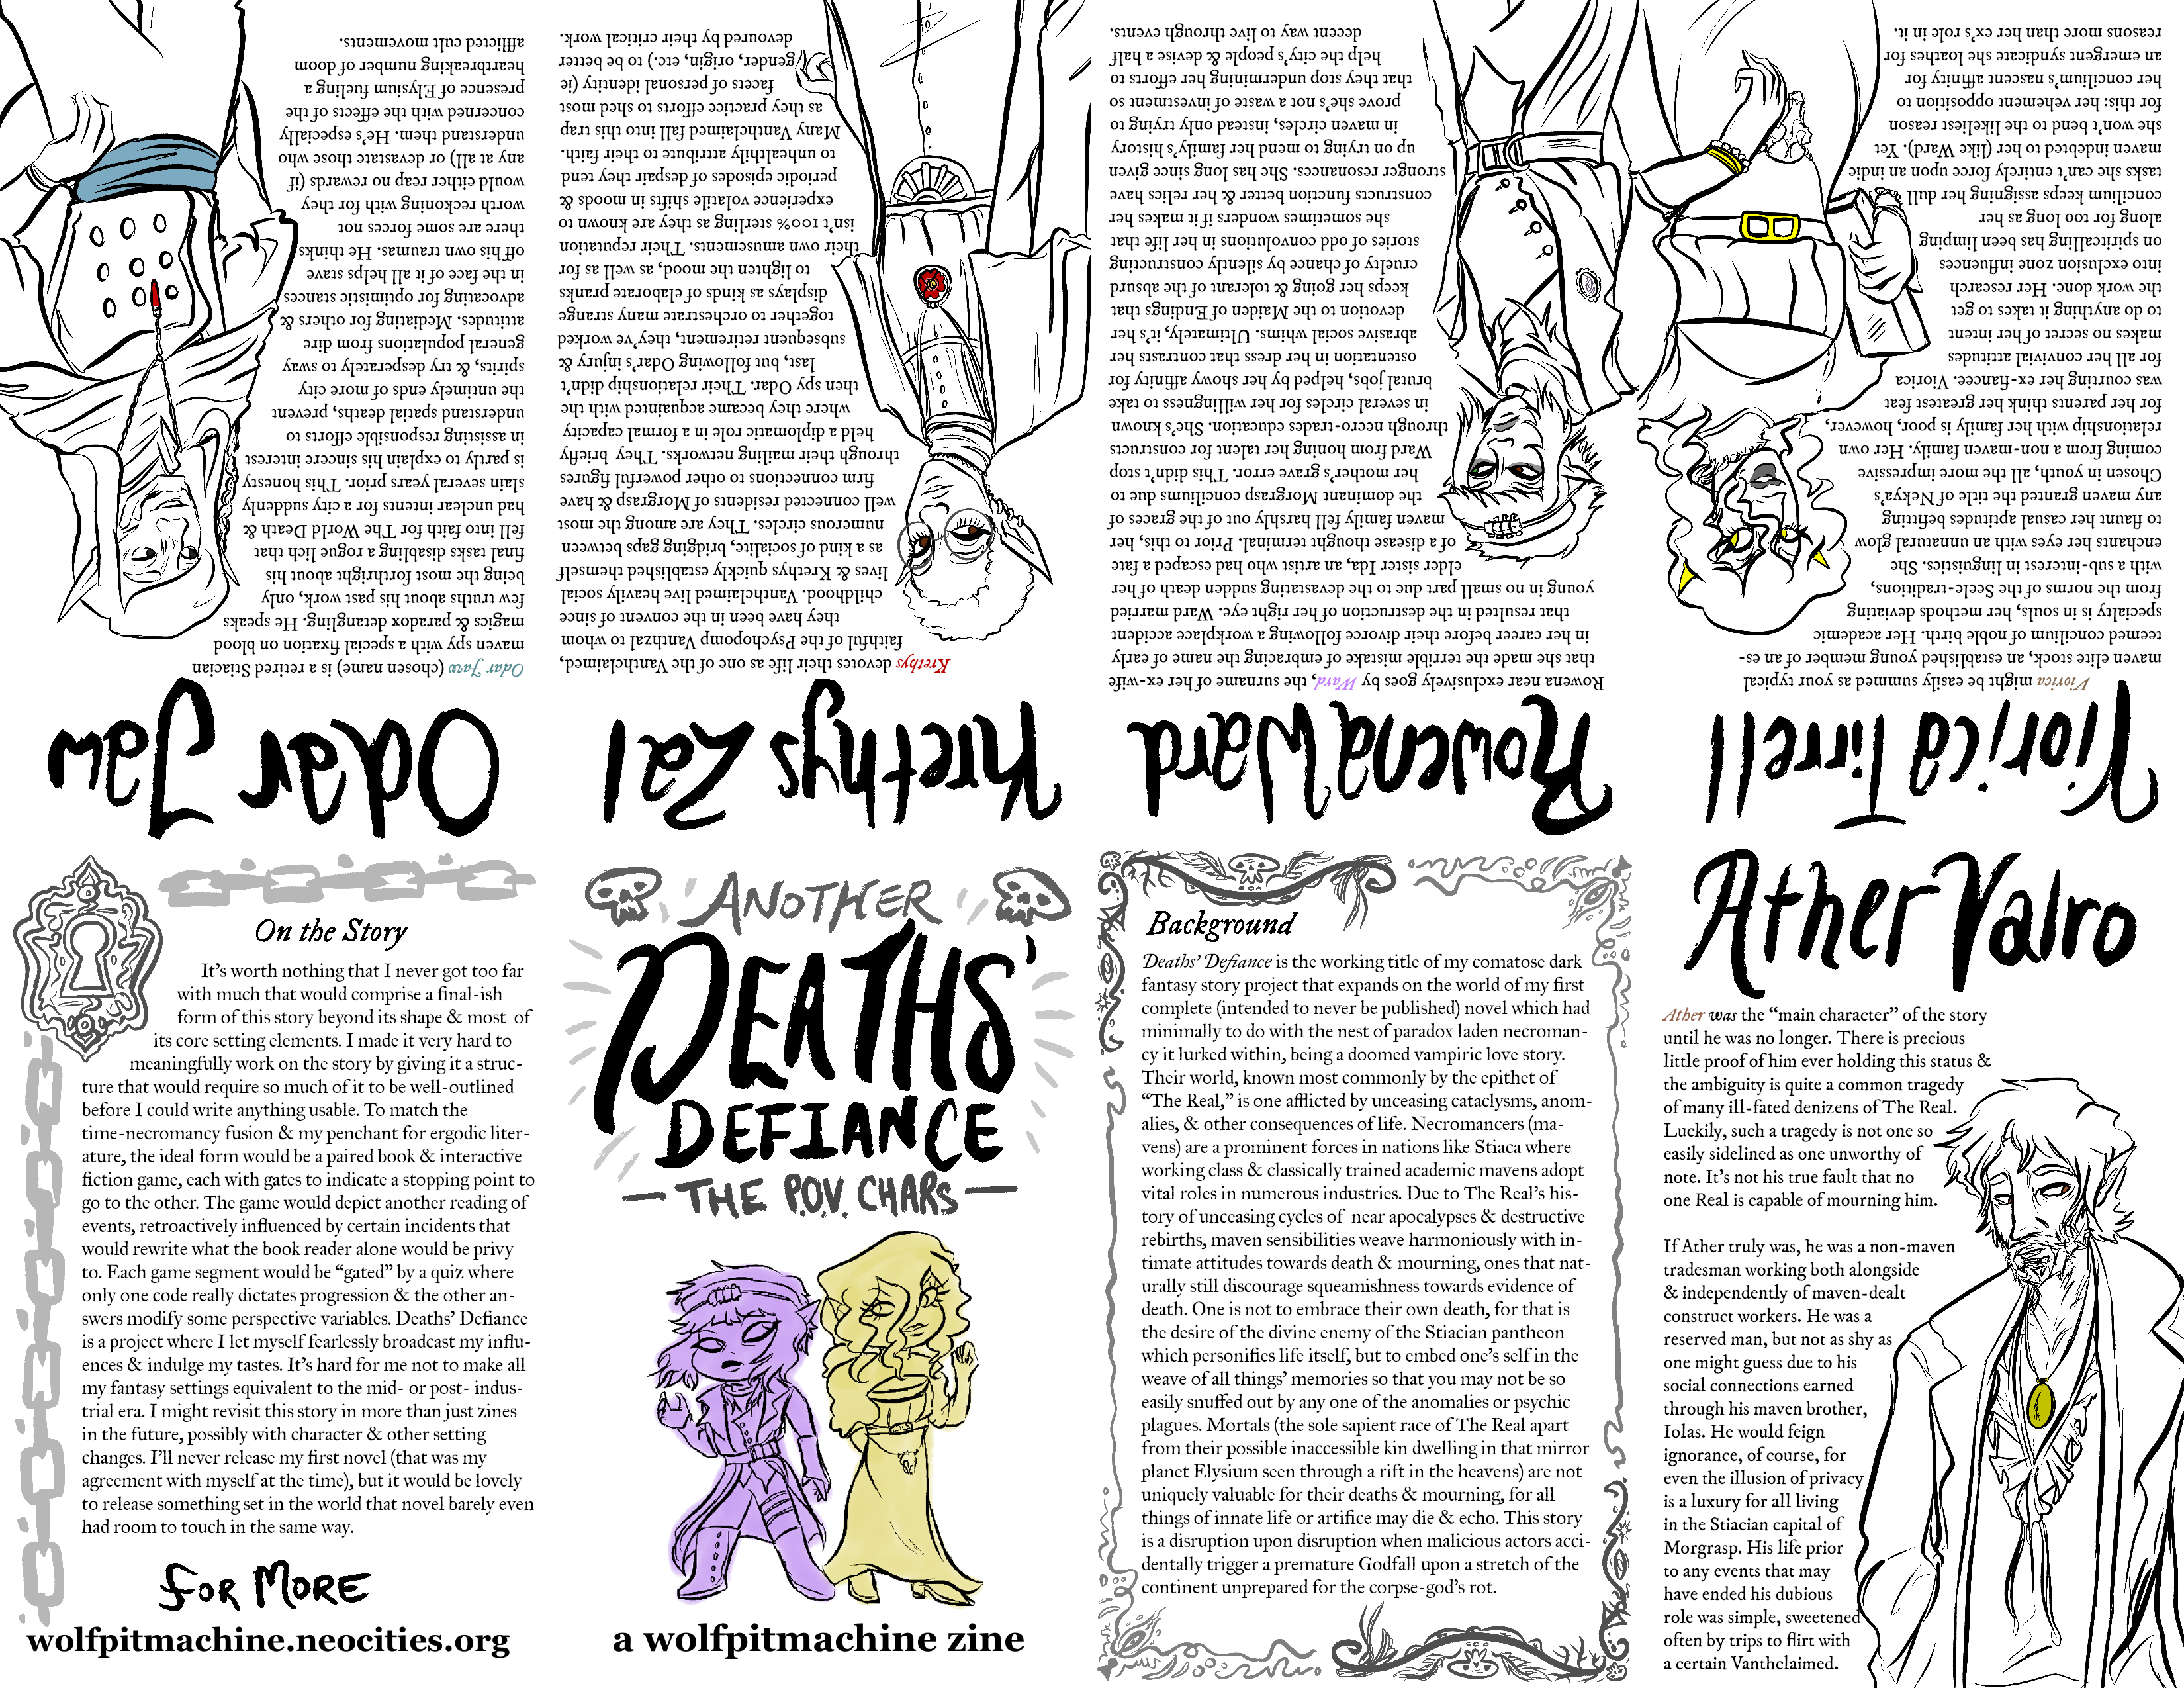 ANOTHER
DEATHS'
DEFIANCE
— THE P.O.V. CHARS —
a wolfpitmachine zine
Background
Deaths' Defiance is the working title of my comatose dark
fantasy story project that expands on the world of my first
complete (intended to never be published) novel which had
minimally to do with the nest of paradox laden necroman-
cy it lurked within, being a doomed vampiric love story.
Their world, known most commonly by the epithet of
“The Real,” is one afflicted by unceasing cataclysms, anom-
alies, & other consequences of life. Necromancers (ma-
vens) are a prominent forces in nations like Stiaca where
working class & classically trained academic mavens adopt
vital roles in numerous industries. Due to The Real's his-
tory of unceasing cycles of near apocalypses & destructive
rebirths, maven sensibilities weave harmoniously with in-
timate attitudes towards death & mourning, ones that nat-
urally still discourage squeamishness towards evidence of
death. One is not to embrace their own death, for that is
the desire of the divine enemy of the Stiacian pantheon
which personifies life itself, but to embed one's self in the
weave of all things' memories so that you may not be so
easily snuffed out by any one of the anomalies or psychic
plagues. Mortals (the sole sapient race of The Real apart
from their possible inaccessible kin dwelling in that mirror
planet Elysium seen through a rift in the heavens) are not
uniquely valuable for their deaths & mourning, for all
things of innate life or artifice may die & echo. This story
is a disruption upon disruption when malicious actors acci-
dentally trigger a premature Godfall upon a stretch of the
continent unprepared for the corpse-god's rot.
Ather Valro
Ather was the “main character” of the story
until he was no longer. There is precious
little proof of him ever holding this status &
the ambiguity is quite a common tragedy
of many ill-fated denizens of The Real.
Luckily, such a tragedy is not one so
easily sidelined as one unworthy of
note. It's not his true fault that no
one Real is capable of mourning him.
If Ather truly was, he was a non-maven
tradesman working both alongside
& independently of maven-dealt
construct workers. He was a
reserved man, but not as shy as
one might guess due to his
social connections earned
through his maven brother,
Iolas. He would feign
ignorance, of course, for
even the illusion of privacy
is a luxury for all living
in the Stiacian capital of
Morgrasp. His life prior
to any events that may
have ended his dubious
role was simple, sweetened
often by trips to flirt with
a certain Vanthclaimed.
Viorica Tirrell
Viorica might be easily summed as your typical
maven elite stock, an established young member of an es-
teemed concilium of noble birth. Her academic
specialty is in souls, her methods deviating
from the norms of the Seele-traditions,
with a sub-interest in linguistics. She
enchants her eyes with an unnatural glow
to flaunt her casual aptitudes befitting
any maven granted the title of Nekya's
Chosen in youth, all the more impressive
coming from a non-maven family. Her own
relationship with her family is poor, however,
for her parents think her greatest feat
was courting her ex-fiancee. Viorica
for all her convivial attitudes
makes no secret of her intent
to do anything it takes to get
the work done. Her research
into exclusion zone influences
on spiritcalling has been limping
along for too long as her
concilium keeps assigning her dull
tasks she can't entirely force upon an indie
maven indebted to her (like Ward). Yet
she won't bend to the likeliest reason
for this: her vehement opposition to
her concilium's nascent affinity for
an emergent syndicate she loathes for
reasons more than her ex's role in it.
Rowena Ward
Rowena near exclusively goes by Ward, the surname of her ex-wife
that she made the terrible mistake of embracing the name of early
in her career before their divorce following a workplace accident
that resulted in the destruction of her right eye. Ward married
young in no small part due to the devastating sudden death of her
elder sister Ida, an artist who had escaped a fate
of a disease thought terminal. Prior to this, her
maven family fell harshly out of the graces of
the dominant Morgrasp conciliums due to
her mother's grave error. This didn't stop
Ward from honing her talent for constructs
through necro-trades education. She's known
in several circles for her willingness to take
brutal jobs, helped by her showy affinity for
ostentation in her dress that contrasts her
abrasive social whims. Ultimately, it's her
devotion to the Maiden of Endings that
keeps her going & tolerant of the absurd
cruelty of chance by silently constructing
stories of odd convolutions in her life that
she sometimes wonders if it makes her
constructs function better & her relics have
stronger resonances. She has long since given
up on trying to mend her family's history
in maven circles, instead only trying to
prove she's not a waste of investment so
that they stop undermining her efforts to
help the city's people & devise a half
decent way to live through events.
Krethys Zal
Krethys devotes their life as one of the Vanthclaimed,
faithful of the Psychopomp Vanthzal to whom
they have been in the convent of since
childhood. Vanthclaimed live heavily social
lives & Krethys quickly established themself
as a kind of socialite, bridging gaps between
numerous circles. They are among the most
well connected residents of Morgrasp & have
firm connections to other powerful figures
through their mailing networks. They briefly
held a diplomatic role in a formal capacity
where they became acquainted with the
then spy Odar. Their relationship didn't
last, but following Odar's injury &
subsequent retirement, they've worked
together to orchestrate many strange
displays as kinds of elaborate pranks
to lighten the mood, as well as for
their own amusements. Their reputation
isn't 100% sterling as they are known to
experience volatile shifts in moods &
periodic episodes of despair they tend
to unhealthily attribute to their faith.
Many Vanthclaimed fall into this trap
as they practice efforts to shed most
facets of personal identity (ie
gender, origin, etc.) to be better
devoured by their critical work.
Odar Jaw
Odar Jaw (chosen name) is a retired Stiacian
maven spy with a special fixation on blood
magics & paradox detangling. He speaks
few truths about his past work, only
being the most forthright about his
final tasks disabling a rogue lich that
fell into faith for The World Death &
had unclear intents for a city suddenly
slain several years prior. This honesty
is partly to explain his sincere interest
in assisting responsible efforts to
understand spatial deaths, prevent
the untimely ends of more city
spirits, & try desperately to sway
general populations from dire
attitudes. Mediating for others &
advocating for optimistic stances
in the face of it all helps stave
off his own traumas. He thinks
there are some forces not
worth reckoning with for they
would either reap no rewards (if
any at all) or devastate those who
understand them. He's especially
concerned with the effects of the
presence of Elysium fueling a
heartbreaking number of doom
afflicted cult movements.
On the Story
It's worth nothing that I never got too far
with much that would comprise a final-ish
form of this story beyond its shape & most of
its core setting elements. I made it very hard to
meaningfully work on the story by giving it a struc-
ture that would require so much of it to be well-outlined
before I could write anything usable. To match the
time-necromancy fusion & my penchant for ergodic liter-
ature, the ideal form would be a paired book & interactive
fiction game, each with gates to indicate a stopping point to
go to the other. The game would depict another reading of
events, retroactively influenced by certain incidents that
would rewrite what the book reader alone would be privy
to. Each game segment would be “gated” by a quiz where
only one code really dictates progression & the other an-
swers modify some perspective variables. Deaths' Defiance
is a project where I let myself fearlessly broadcast my influ-
ences & indulge my tastes. It's hard for me not to make all
my fantasy settings equivalent to the mid- or post- indus-
trial era. I might revisit this story in more than just zines
in the future, possibly with character & other setting
changes. I'll never release my first novel (that was my
agreement with myself at the time), but it would be lovely
to release something set in the world that novel barely even
had room to touch in the same way.
FOR MORE
wolfpitmachine.neocities.org